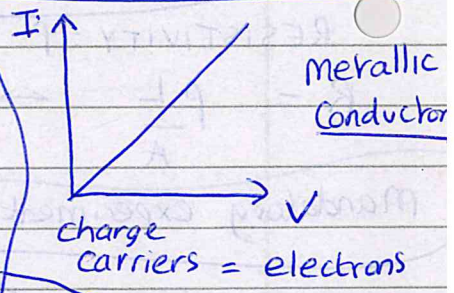 I
metallic
Conductor
V
charge
carriers = electrons